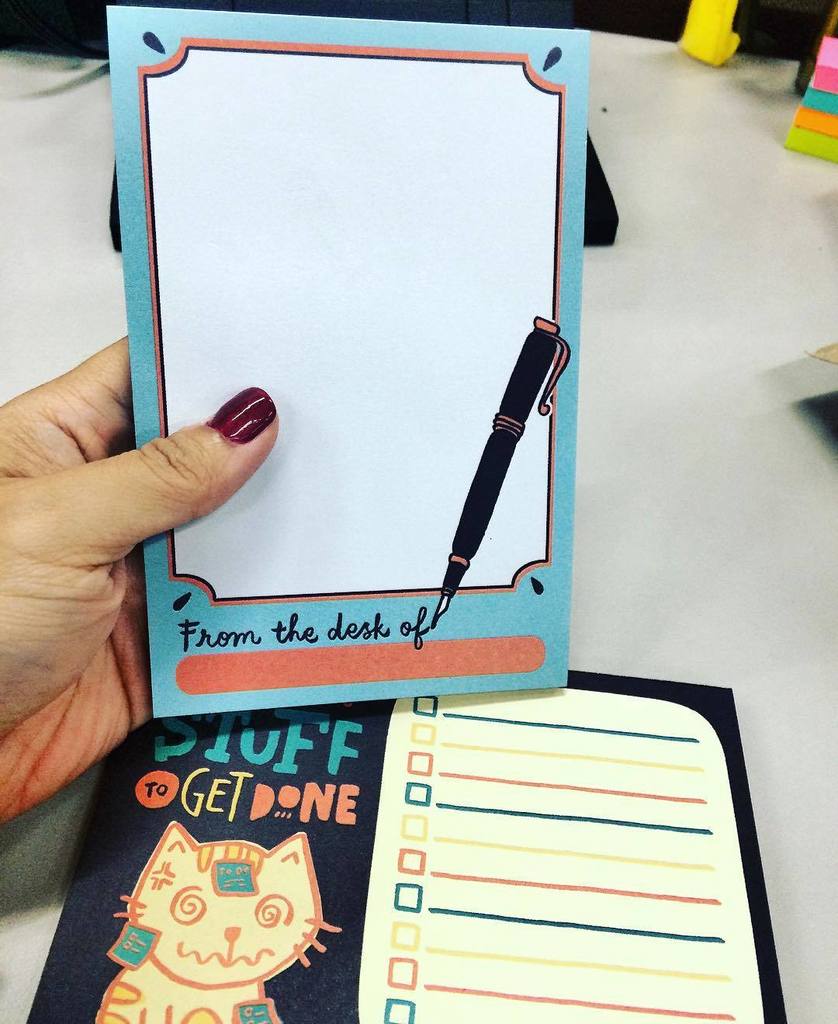 From the desk of
STUFF
TO GET DONE
TO DO